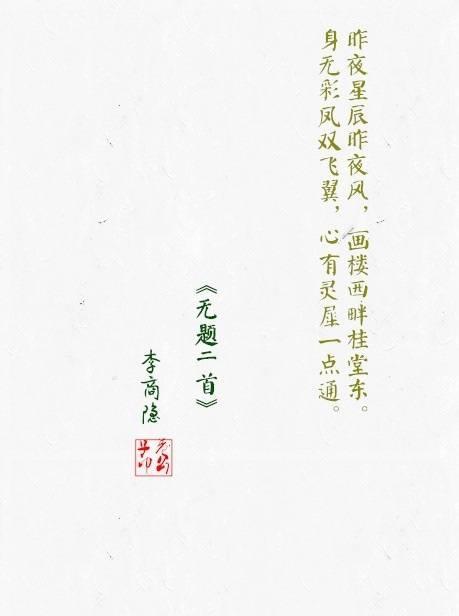 昨夜星辰昨夜风，画楼西畔桂堂东。
身无彩凤双飞翼，心有灵犀一点通。
《无题二首》
李商隐